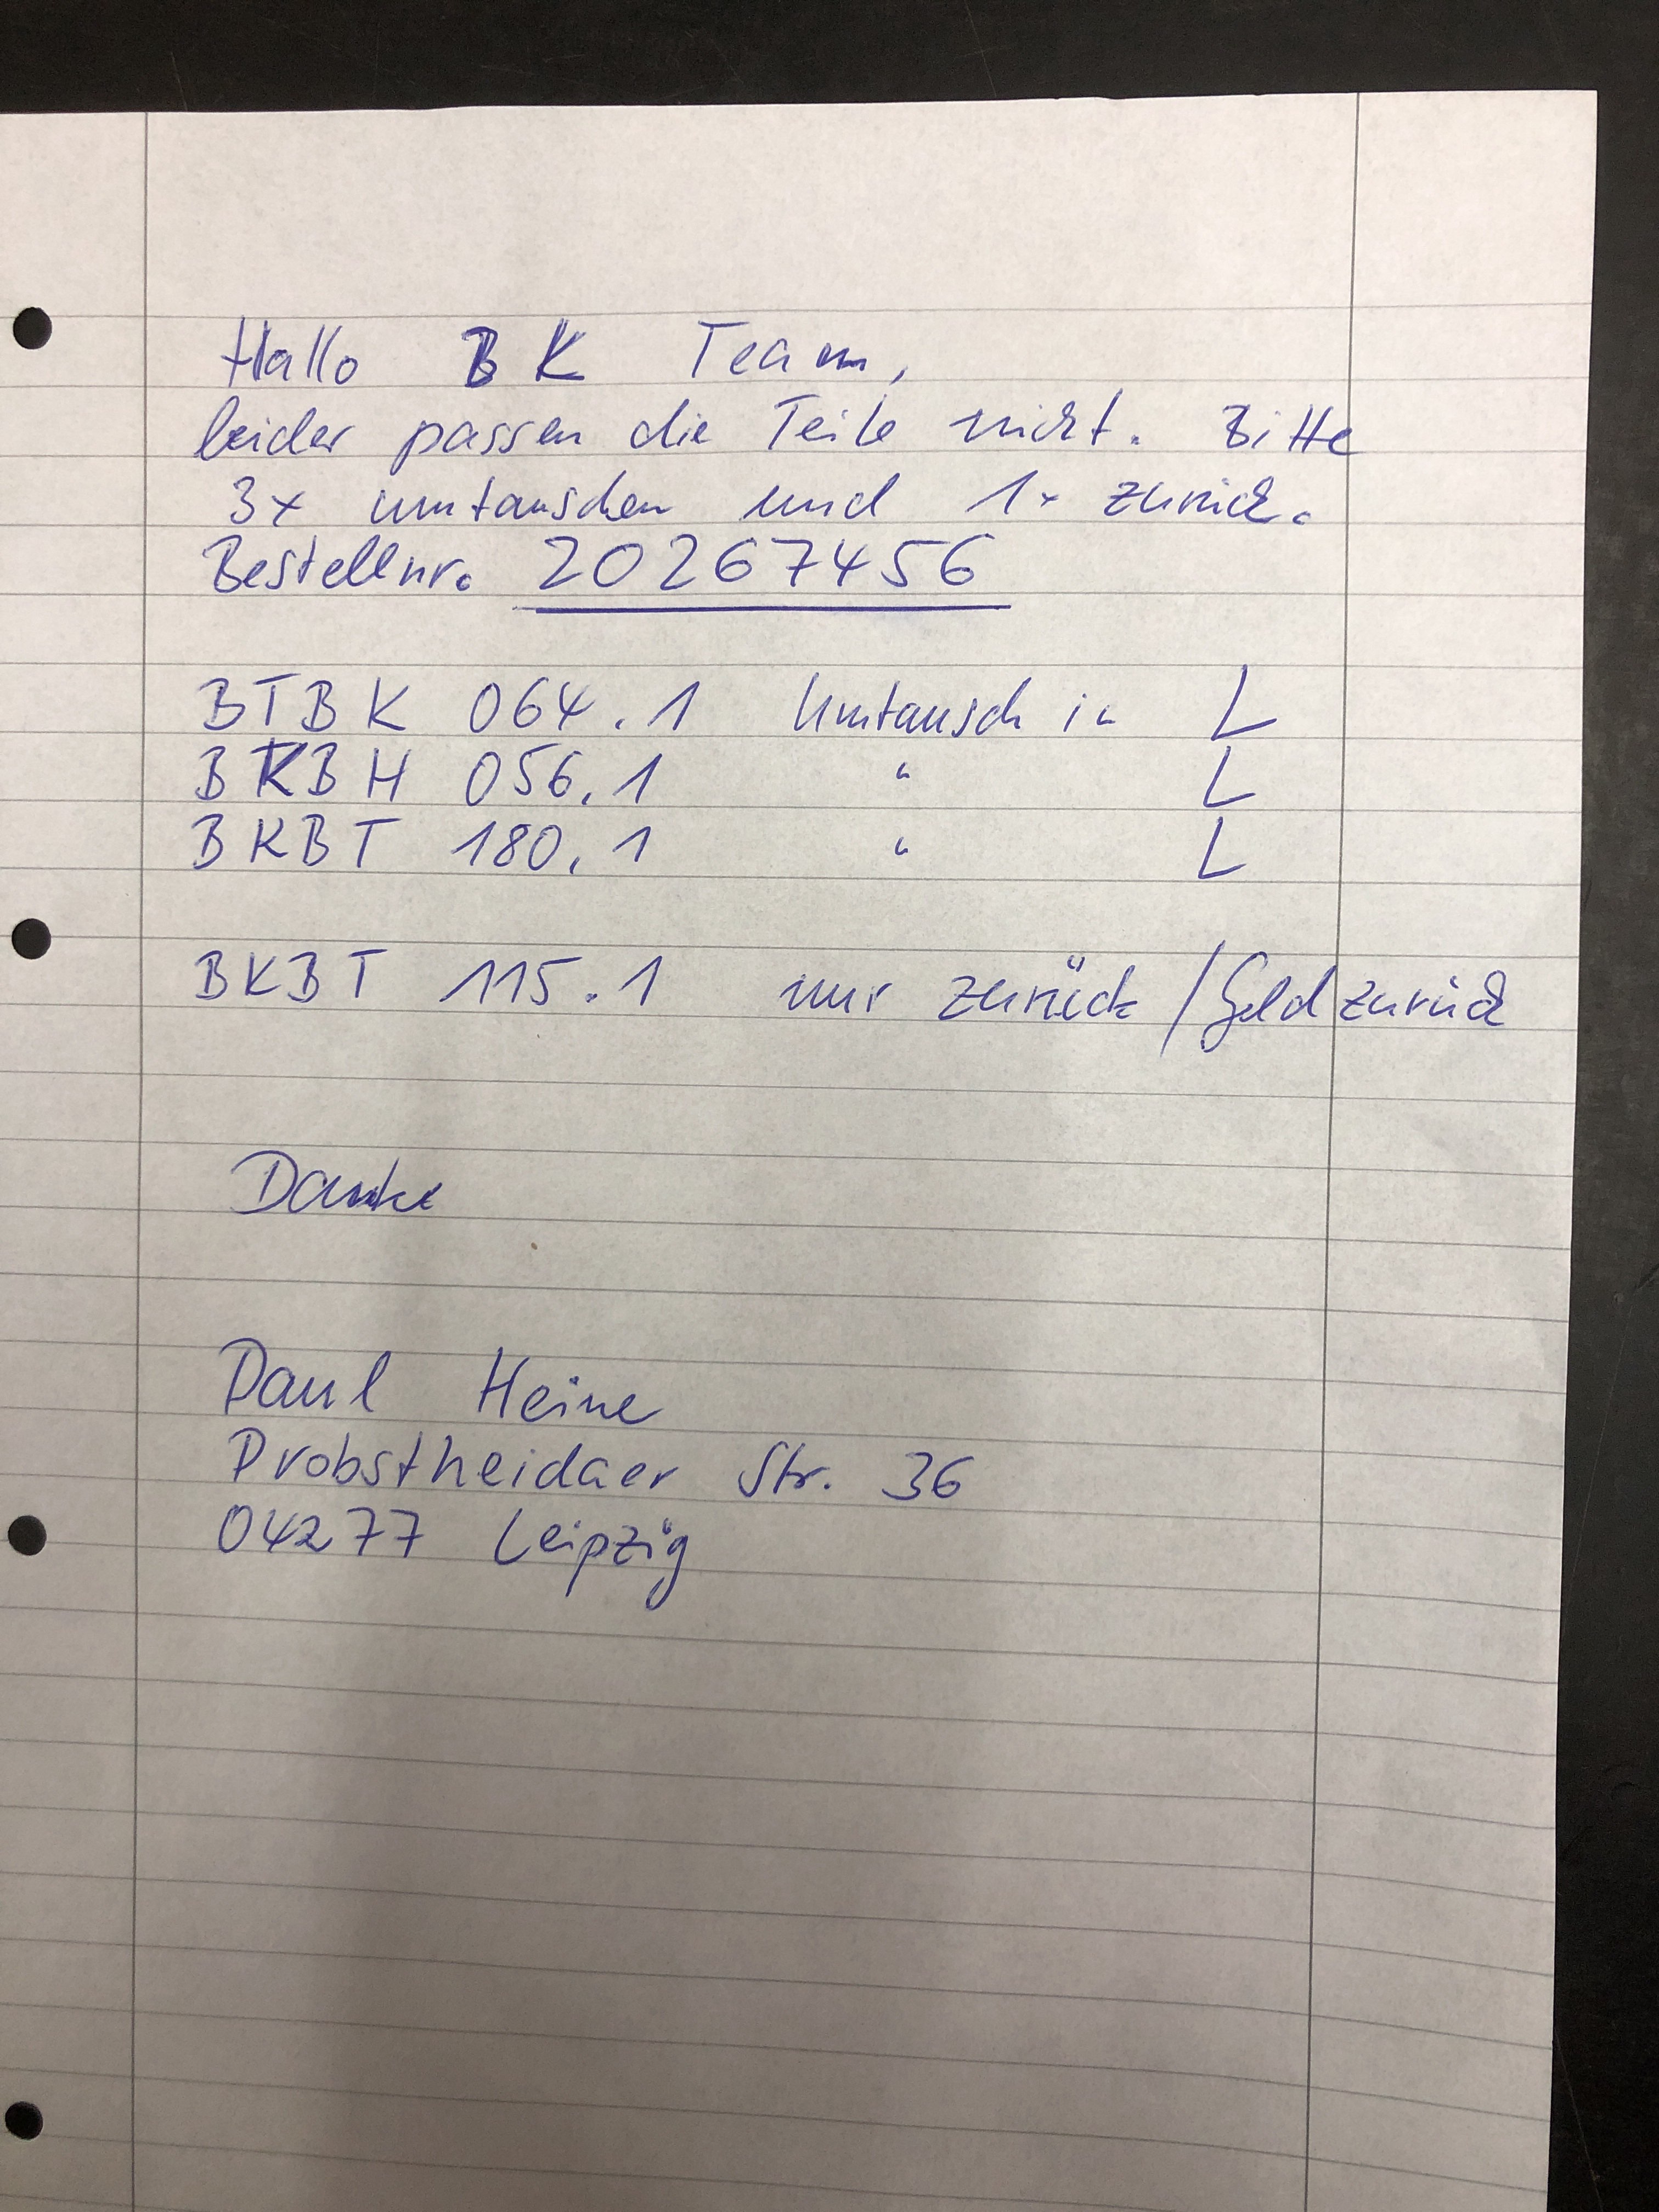 Hallo BK Team,
leider passen die Teile nicht. Bitte
3x umtauschen und 1x zurück.
Bestellnr. 20267456
BTBK 064.1 Umtausch in L
BKBH 056.1 " L
BKBT 180.1 " L
BKBT 115.1 nur zurück / Geld zurück
Danke
Paul Heine
Probstheidaer Str. 36
04277 Leipzig